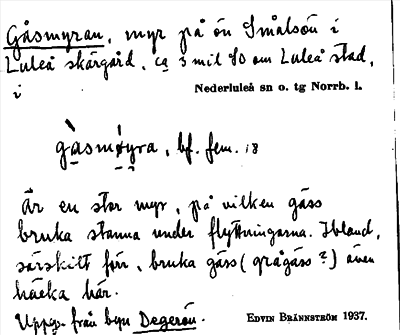 Gåsmyran, myr på ön Småsön i
Luleå skärgård, ca 3 mil SO om Luleå stad,
i Nederluleå sn o. tg Norrb. l.
gàsmýra, bf. fem. 18
Är en stor myr, på vilken gäss
bruka stanna under flyttningarna. Ibland,
särskilt förr, bruka gäss (grågäss?) även
häcka här.
Uppg. från byn Degerön. EDVIN BRÄNNSTRÖM 1937.